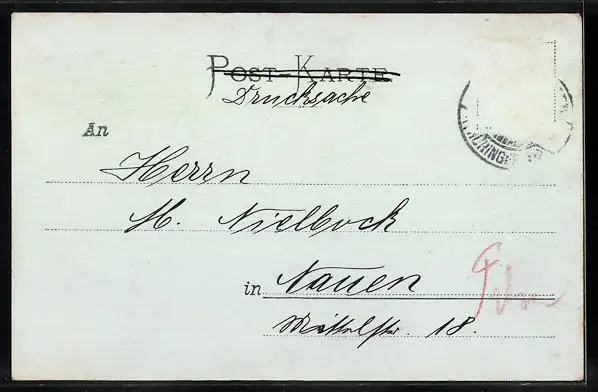 POST-KARTE
Drucksache
An
Herrn
M. Nielbock
in Nauen
Mittelstr. 18.